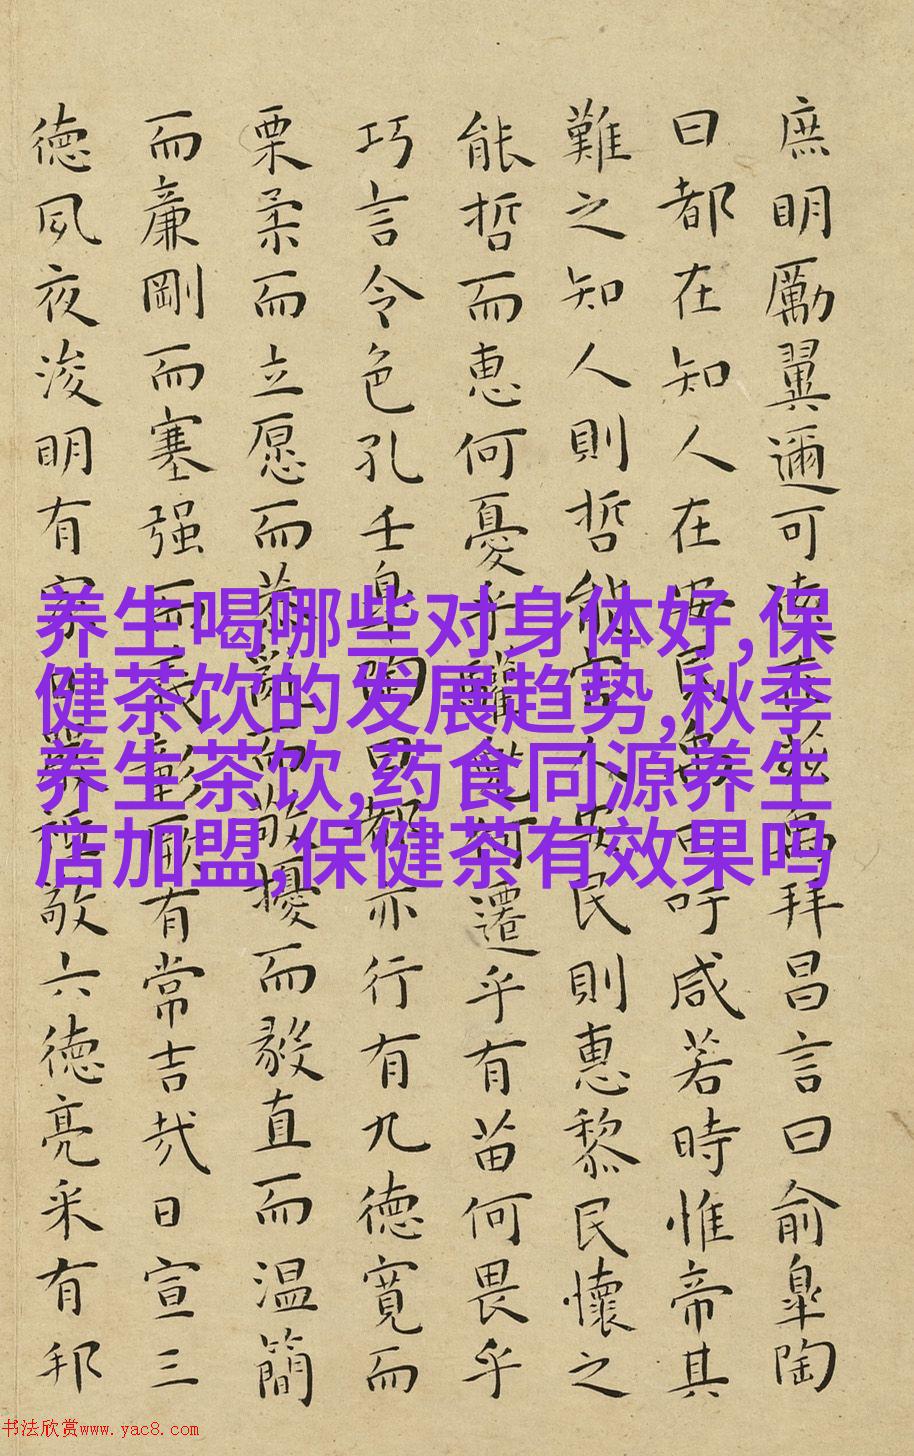 庶明勵翼邇可遠在茲禹拜昌言曰俞皐陶
曰都在知人在安民禹曰吁咸若時惟帝其
難之知人則哲能官人安民則惠黎民懷之
能哲而惠何憂乎驩兜何遷乎有苗何畏乎
巧言令色孔壬皐陶曰都亦行有九德寬而
栗柔而立愿而恭亂而敬擾而毅直而温簡
而廉剛而塞强而義彰厥有常吉哉日宣三
德夙夜浚明有家日嚴祗敬六德亮采有邦
养生喝哪些对身体好,保
健茶饮的发展趋势,秋季
养生茶饮,药食同源养生
店加盟,保健茶有效果吗
书法欣赏www.yac8.com